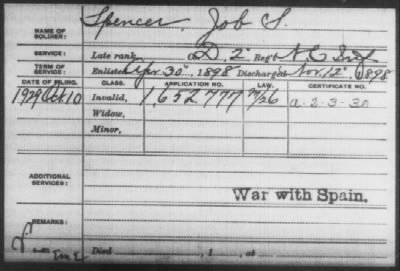 NAME OF SOLDIER: Spencer, Job S.
SERVICE: Late rank, Co. D, 2" Reg't N.C. Inf.
TERM OF SERVICE: Enlisted Apr. 30", 1898 Discharged Nov. 12", 1898
DATE OF FILING. CLASS. APPLICATION NO. LAW. CERTIFICATE NO.
1929 Oct. 10 Invalid, 1.652.777 a-2-3-30
Widow,
Minor,
ADDITIONAL SERVICES:
War with Spain.
REMARKS:
Died , 1 , at